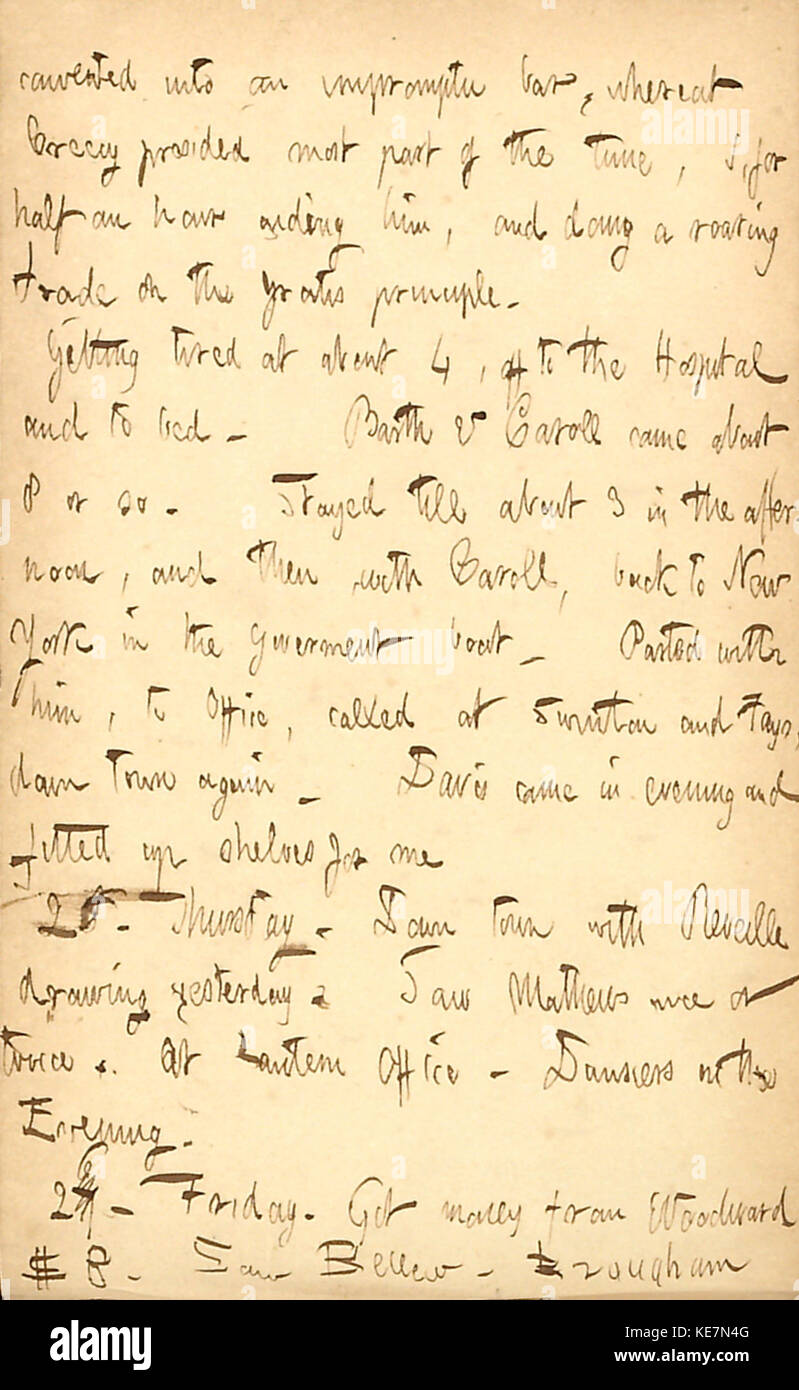 converted into an impromptu bar, whereat
Creecy presided most part of the time, I, for
half an hour aiding him, and doing a roaring
trade on the gratis principle.
Getting tired at about 4, off to the Hospital
and to bed. Barth & Caroll came about
8 or so. Stayed till about 3 in the after-
noon, and then with Caroll, back to New
York in the Goverment boat. Parted with
him, to Office, called at Swinton and Fays,
down town again. Davis came in evening and
fitted up shelves for me
25. Thursday. Down town with Reveille
drawing yesterday. Saw Mathews once or
twice. At Lantern Office. Dansiers in the
Evening.
26. Friday. Got money from Woodward
$8. Saw Bellew. Brougham
alamy
alamy
alamy
a
a
alamy
Image ID: KE7N4G
www.alamy.com